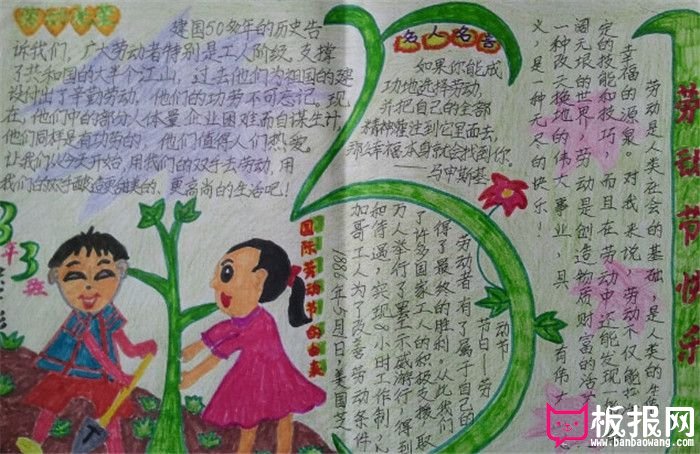 建国50多年的历史告
诉我们，广大劳动者特别是工人阶级，支撑
了共和国的大半个江山，过去他们为祖国的建
设付出了辛勤劳动，他们的功劳不可忘记。现
在，他们中的部分人体量企业困难而自谋生计，
他们同样是有功劳的，他们值得人们热爱。
让我们从今天开始，用我们的双手去劳动，用
我们的双手酿造更甜美的、更高尚的生活吧！
名人名言
如果你能成
功地选择劳动，
并把自己的全部
精神灌注到它里面去，
那么幸福本身就会找到你。
劳动节快乐
劳动是人类社会的基础，是人类的生
幸福的源泉。对我来说，劳动不仅能
定的技能和技巧，而且在劳动中还能发现
阔无垠的世界。劳动是创造物质财富的活
一种改天换地的伟大事业，具有伟大
义，是一种无尽的快乐！
国际劳动节的由来
1886年5月1日，美国芝
加哥工人为了改善劳动条件
和待遇，实现8小时工作制，
为人举行了罢工示威游行，得到
了许多国家工人的积极支援，取
得了最终的胜利。从此我们
劳动者有了属于自己的
节日——劳
动节
板报网
www.banbaowang.com